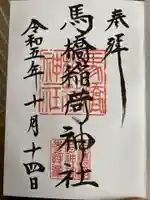 奉拝
馬橋稲荷神社
令和五年十月十四日